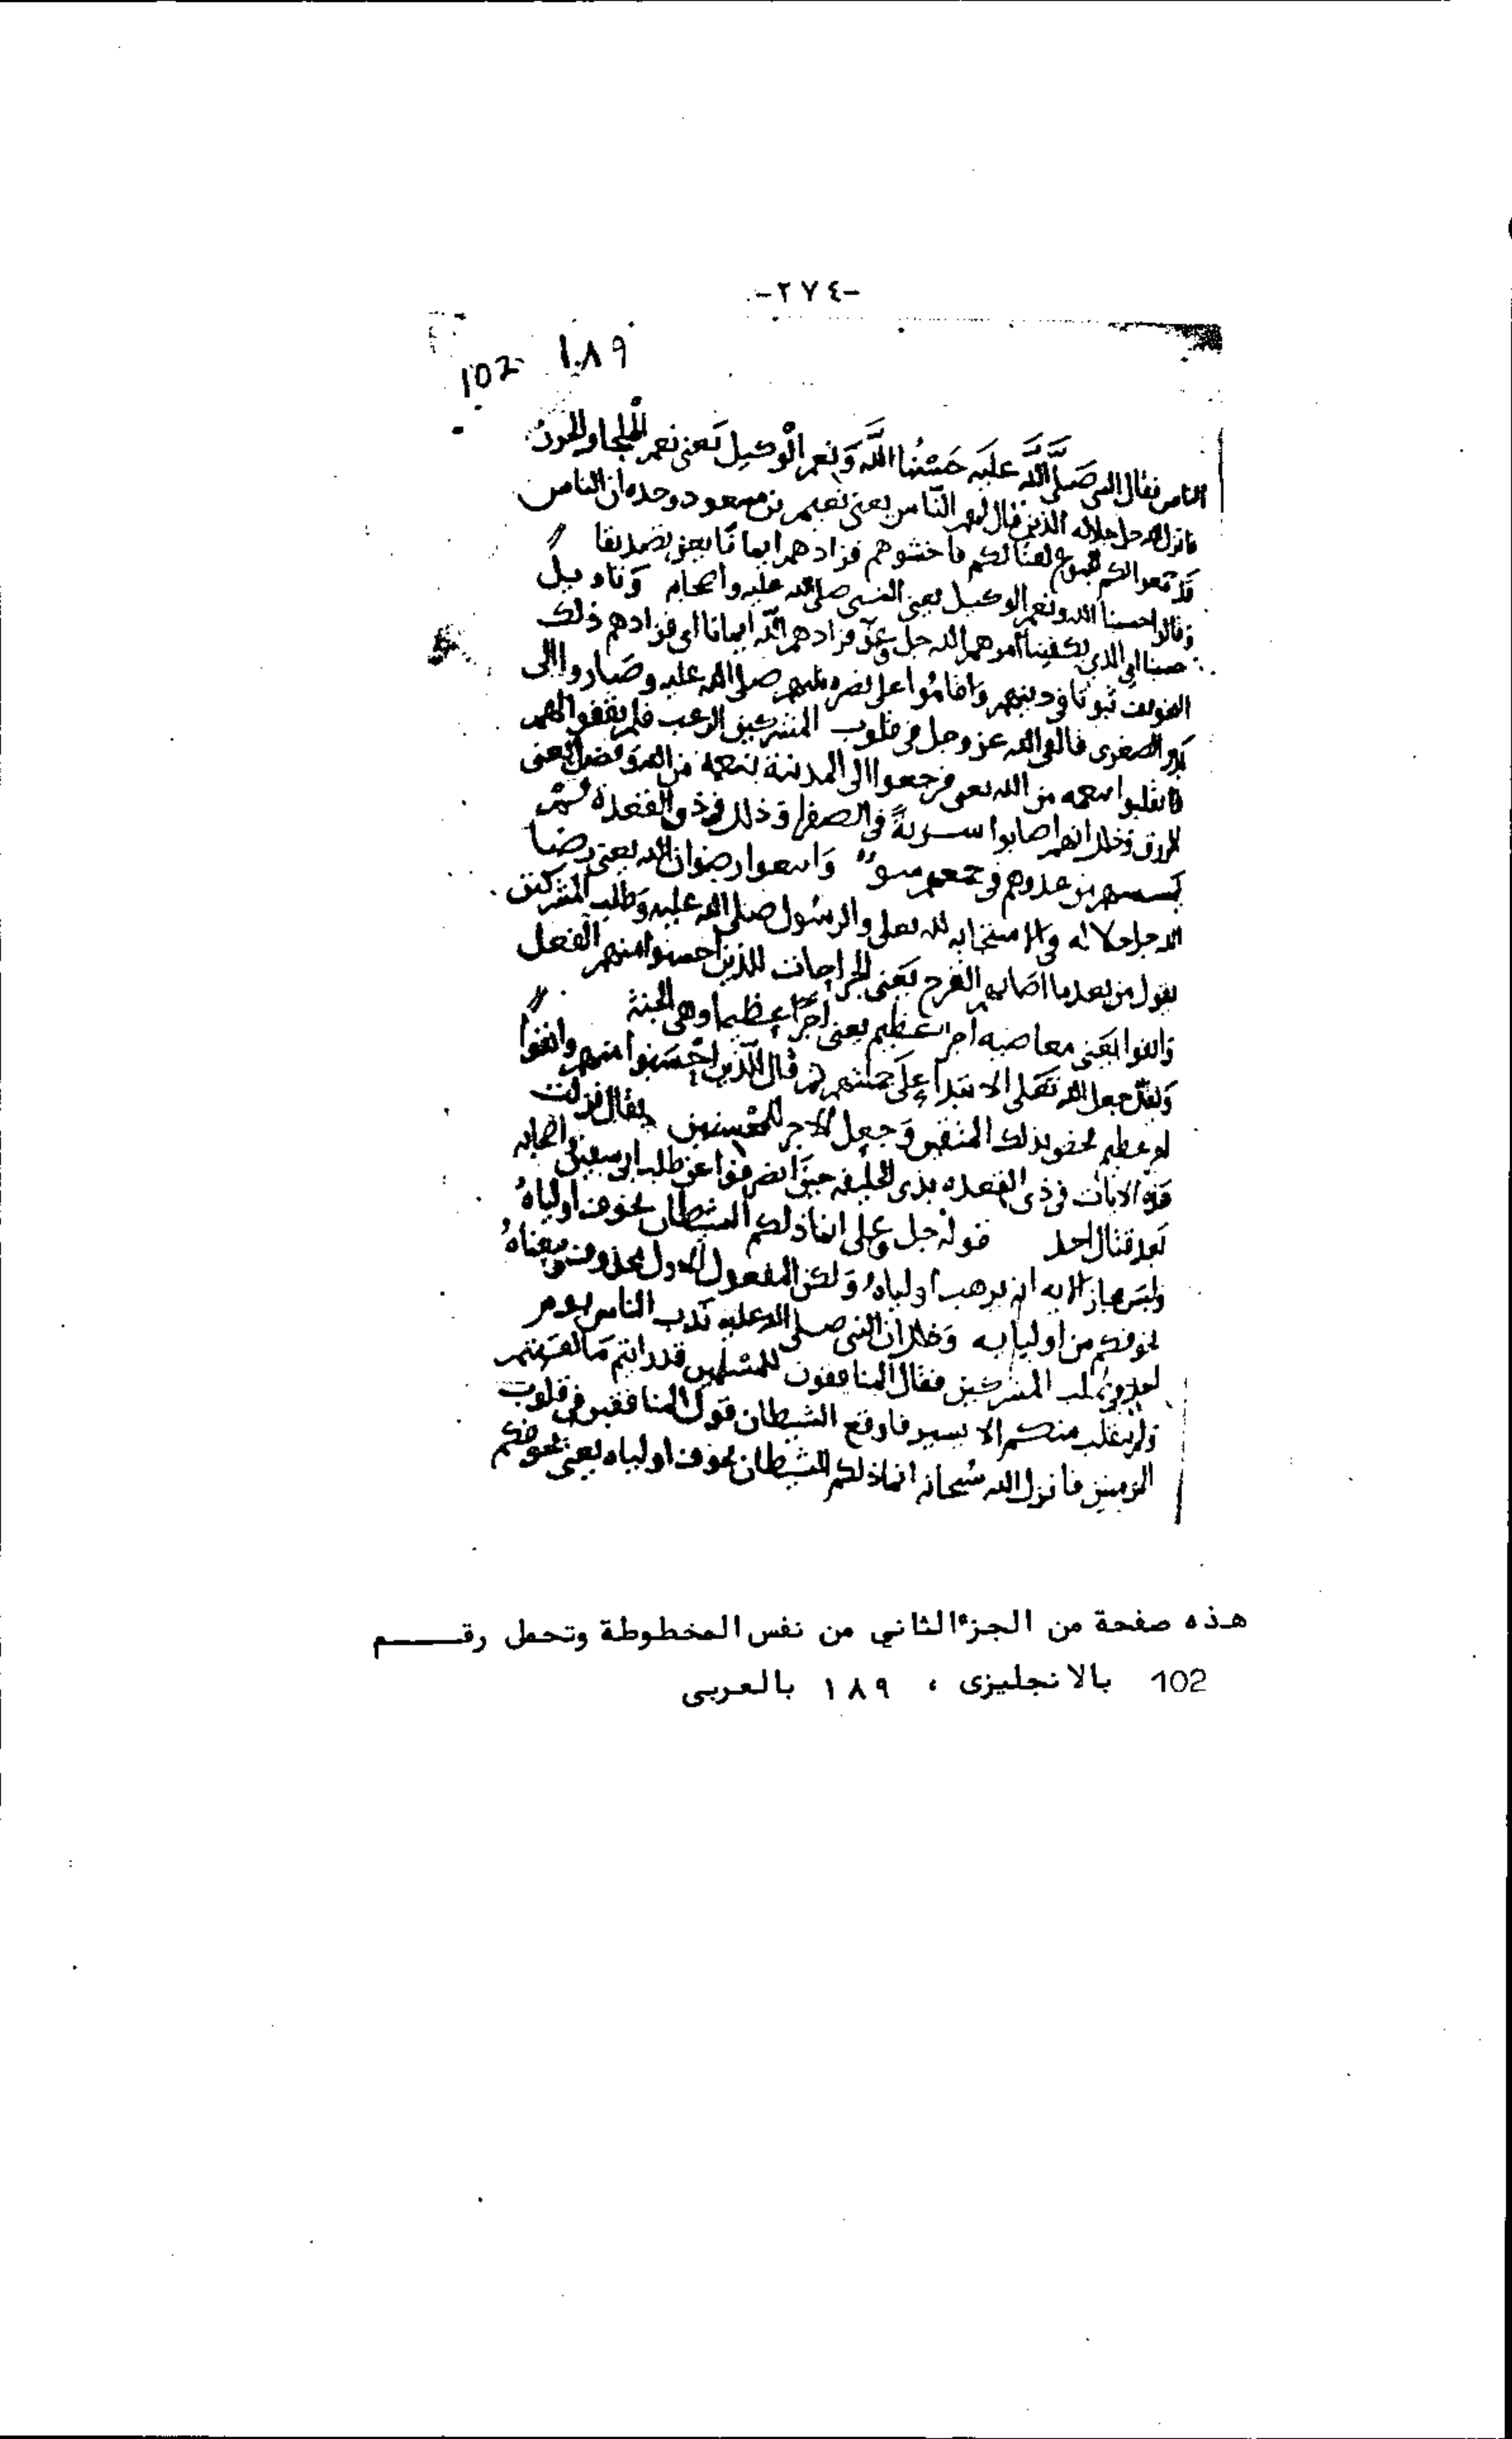 -٢٧٤-
102 ١٨٩
الناس فقال النبي صلى الله عليه حسبنا الله ونعم الوكيل يعني نعم الملجا والحرز
فانزل الله جل جلاله الذين قال لهم الناس يعني نعيم بن مسعود وحده ان الناس
قد جمعوا لكم الجموع لقتالكم فاخشوهم فزادهم ايمانا يعني تصديقا
وقالوا حسبنا الله ونعم الوكيل يعني النبي صلى الله عليه واصحابه وتاويل
حسبنا اي الذي يكفينا امرهم الله جل وعز فزادهم الله ايمانا اي فزادهم ذلك
التخويف ثبوتا في دينهم واقاموا على نصره نبيهم صلى الله عليه وصاروا الى
بدر الصغرى فالقى الله عز وجل في قلوب المشركين الرعب فلم يقفوا لهم
فانقلبوا بنعمه من الله يعني فرجعوا الى المدينة بنعمة من الله وفضل يعني
الرزق وذلك انهم اصابوا سرية في الصفراء وذلك في ذي القعدة لم
يمسسهم من عدوهم في جمعهم سوء واتبعوا رضوان الله يعني رضا
الله جل جلاله في الاستجابه لله تعالى والرسول صلى الله عليه وطلب المشركين
يقول من بعد ما اصابهم القرح يعني الجراحات للذين احسنوا منهم الفعل
واتقوا يعني معاصيه اجر عظيم يعني اجرا عظيما وهي الجنة
ولقد جعل الله تعالى الابتداء على جملتهم ثم قال للذين احسنوا منهم واتقوا
اجر عظيم فخص بذلك المتقين وجعل الاجر للمحسنين يقال نزلت
هذه الايات في ذي القعده بذي الحليفه حين انصرفوا عن طلب ابي سفين واصحابه
بعد قتال احد قوله جل وعلى انما ذلكم الشيطان يخوف اولياءه
وليس مجاز الايه انه يرهب اولياءه ولكن المفعول الاول محذوف معناه
يخوفكم من اوليايه وذلك ان النبي صلى الله عليه ندب الناس يوم
احد في طلب المشركين فقال المنافقون للمسلمين قد رايتم ما لقيتم
ولم ينقلب منكم الا يسير فاوقع الشيطان قول المنافقين في قلوب
المومنين فانزل الله سبحانه انما ذلكم الشيطان يخوف اولياه يعني يخوفكم
هذه صفحة من الجزء الثاني من نفس المخطوطة وتحمل رقـــم
102 بالانجليزى ، ١٨٩ بالعربى